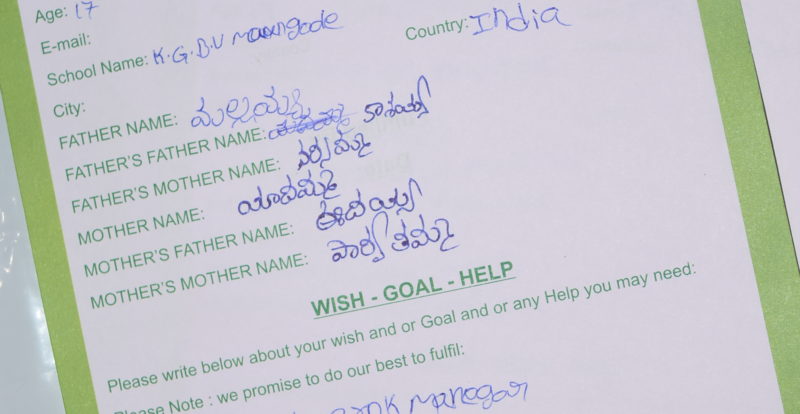 Age: 17
E-mail:
School Name: K.G.B.V Country: India
City:
FATHER NAME: మల్లయ్య
FATHER'S FATHER NAME: కాశయ్య
FATHER'S MOTHER NAME: నర్సమ్మ
MOTHER NAME: యాదమ్మ
MOTHER'S FATHER NAME: ఈదయ్య
MOTHER'S MOTHER NAME: పార్వతమ్మ
WISH - GOAL - HELP
Please write below about your wish and or Goal and or any Help you may need:
Please Note : we promise to do our best to fulfil:
manegar